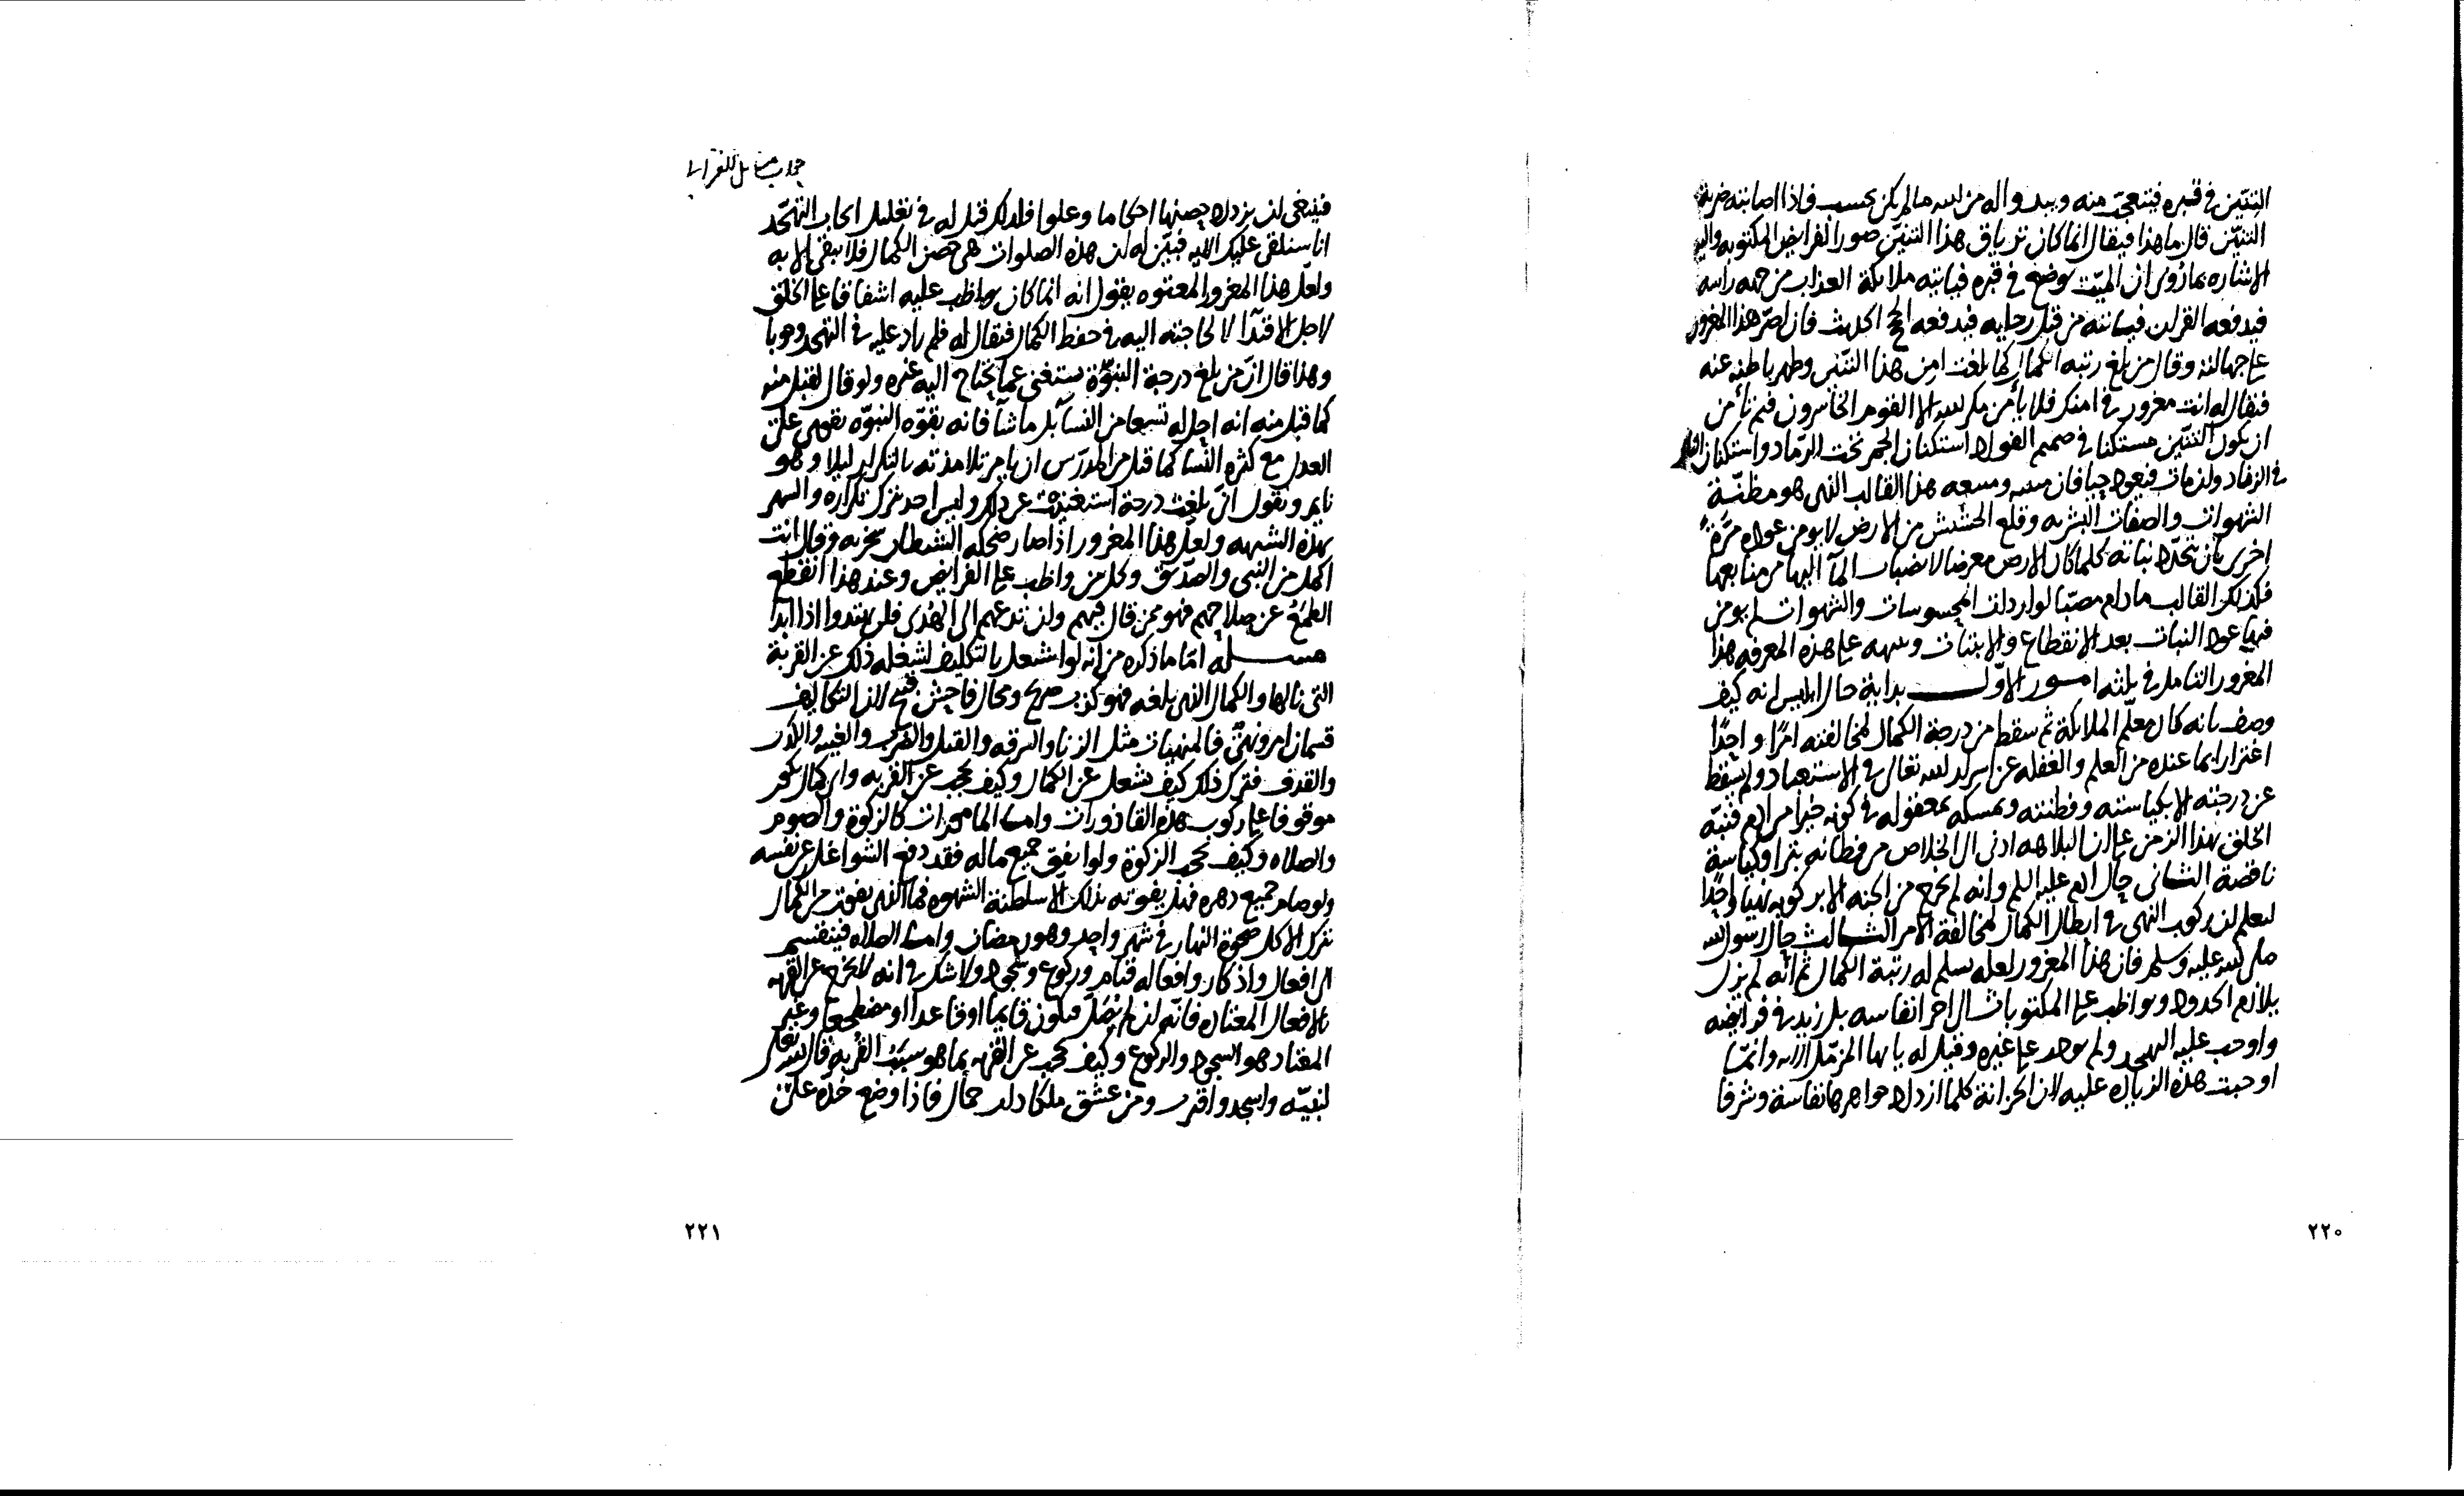 التنين في قبره فيتعجب منه ويبدو اله من الله ما لم يكن يحتسب فاذا اصابته ضربة
التنين قال ما هذا فيقال انما كان ترياق هذا التنين صور الفرايض المكتوبه واليه
الاشاره بما روى ان الميت يوضع في قبره فياتيه ملايكة العذاب من جهه راسه
فيدفعه القران فياتيه من قبل رجليه فيدفعه الحج الحديث فان اصر هذا المغرور
على جهالته وقال من بلغ رتبه الكمال كما بلغت امن هذا التنين وطهر باطنه عنه
فيقال له انت مغرور في امنك فلا يأمن مكر الله الا القوم الخاسرون فبم تأمن
ان يكون التنين مستكنا في صميم الفواد استكنان الجمر تحت الرماد واستكنان النار
في الزناد ولن مات فيعود حيا فان هذا القالب الذي هو مظنة
الشهوات والصفات البشريه وقلع الحشيش من الارض لا يومن عوده مرة
اخرى بأن يتجدد نباته كلما كان الارض معرضا لانصباب المآ اليها من منابعها
فكذلك القالب ما دام مصبا لواردات المحسوسات والشهوات لم يومن
فيها عود النبات بعد الانقطاع والانبتات على هذه المعرفه هذا
المغرور التامل في ثلثه امور الاول بداية حال ابليس انه كيف
وصف بانه كان معلم الملايكة ثم سقط من درجة الكمال لمخالفته امرا واحدا
اغترارا بما عنده من العلم والغفله عن اسرار الله تعالى في الاستعباد ولم يسقط
عن درجته الا بكياسته وفطنته وتمسكه بمعقوله في كونه خيرا من ادم فنبه
الخلق بهذا الرمز على ان البلاهه ادنى الى الخلاص من فطانه بترا وكياسة
ناقصة الثاني حال ادم عليه السلم وانه لم يخرج من الجنه الا بركوبه نهيا واحدا
ليعلم ان ركوب النهي في ابطال الكمال كمخالفة الامر الثالث حال رسول الله
صلى الله عليه وسلم فان هذا المغرور لعله يسلم له رتبة الكمال ثم انه لم يزل
يلازم الحدود ويواظب على المكتوبات الى اخر انفاسه بل زيد في فرايضه
واوجب عليه التهجد ولم يوجب على غيره وقيل له يا ايها المزمل الايه وانما
اوجبت هذه الزياده عليه لان الخزانة كلما ازداد جواهرها نفاسة وشرفا
٢٢٠
جواب مسايل للغزالي
فينبغي ان يزداد حصنها احكاما وعلوا فلذلك قيل له في تعليل ايجاب التهجد
انا سنلقي عليك الايه فتبين له ان هذه الصلوات هي حصن الكمال فلا يبقى الا به
ولعل هذا المغرور المعتوه يقول انه انما كان يواظب عليه اشفاقا على الخلق
لاجل الاقتدآ لا لحاجته اليه في حفظ الكمال فيقال له فلم زاد عليه في التهجد وجوبا
وهذا قال ان من بلغ درجة النبوة يستغنى عما يحتاج اليه غيره ولو قال لقبل منه
كما قبل منه انه احل له تسعا من النسآ بل ما شآ فانه بقوة النبوه يقوى على
العدل مع كثره النسا كما قبل من المدرس ان يامر تلامذته بالتكرار ليلا وهو
نايم ويقول اني بلغت درجة استغنيت عن ذلك وليس احد يترك تكراره والسهر
بهذه الشبهه ولعل هذا المغرور اذا صار ضحكه الشيطان سخر به وقال انت
اكمل من النبي والصديق وكل من واظب على الفرايض وعند هذا انقطع
الطمع عن صلاحهم فهو ممن قال فيهم وان تدعهم الى الهدى فلن يهتدوا اذا ابدا
مسله اما ما ذكره من انه لو اشتغل بالتكليف لشغله ذلك عن القربة
التي نالها والكمال الذي بلغه فهو كذب صريح ومحال فاحش قبيح لان التكاليف
قسمان امر ونهي فالمنهيات مثل الزنا والسرقه والقتل والضرب والغيبه والكذب
والقذف فترك ذلك كيف يشغل عن الكمال وكيف يحجب عن القربه واي كمال يكون
موقوفا على ركوب هذه القاذورات واما المامورات كالزكوة والصوم
والصلاه وكيف تحجبه الزكوة ولو انفق جميع ماله فقد دفع الشواغل عن نفسه
ولو صام جميع دهره فهل يفوته بذلك الا سلطنة الشهوه فما الذي يفوت من الكمال
بترك الاكل ضحوة النهار في شهر واحد وهو رمضان واما الصلاه فينقسم
الى افعال واذكار وافعاله قيام وركوع وسجود ولا شك في انه لا يخرج عن القربه
بالافعال المعتاده فانه ان لم يصل فيكون قايما او قاعدا او مضطجعا وغير
المعتاد هو السجود والركوع وكيف يحجب عن القربه بما هو سبب القربه قال الله تعالى
لنبيه واسجد واقترب ومن عشق ملكا ذا جمال فاذا وضع خده على
٢٢١